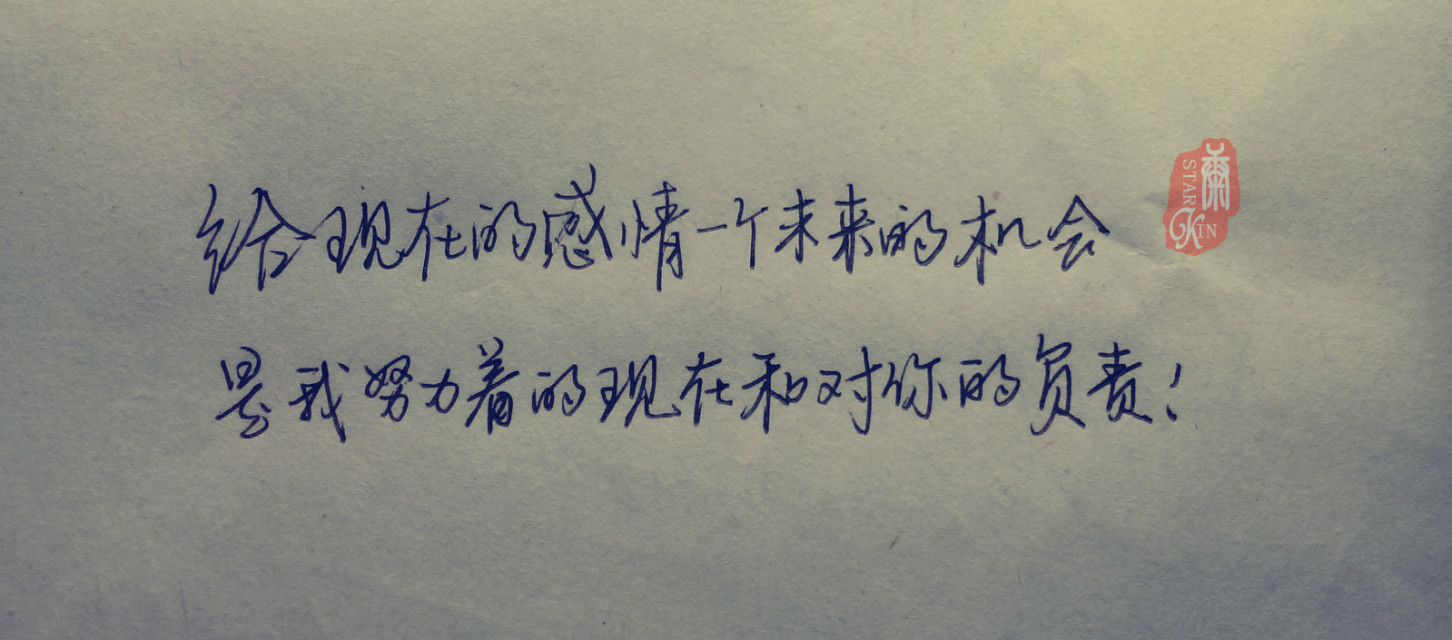 给现在的感情一个未来的机会
是我努力着的现在和对你的负责！
STAR
KIN